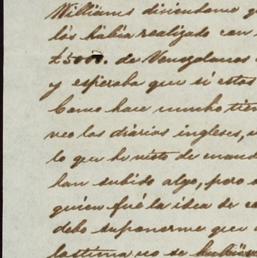 Williams diciendome q
lis había realizado con
£5000. de Venezolanos
y esperaba que si estos
Como hace mucho tien
veo los diarios ingleses,
lo que he visto de cuand
han subido algo, pero
quien fué la idea de co
debo suponerme que
lastima no se